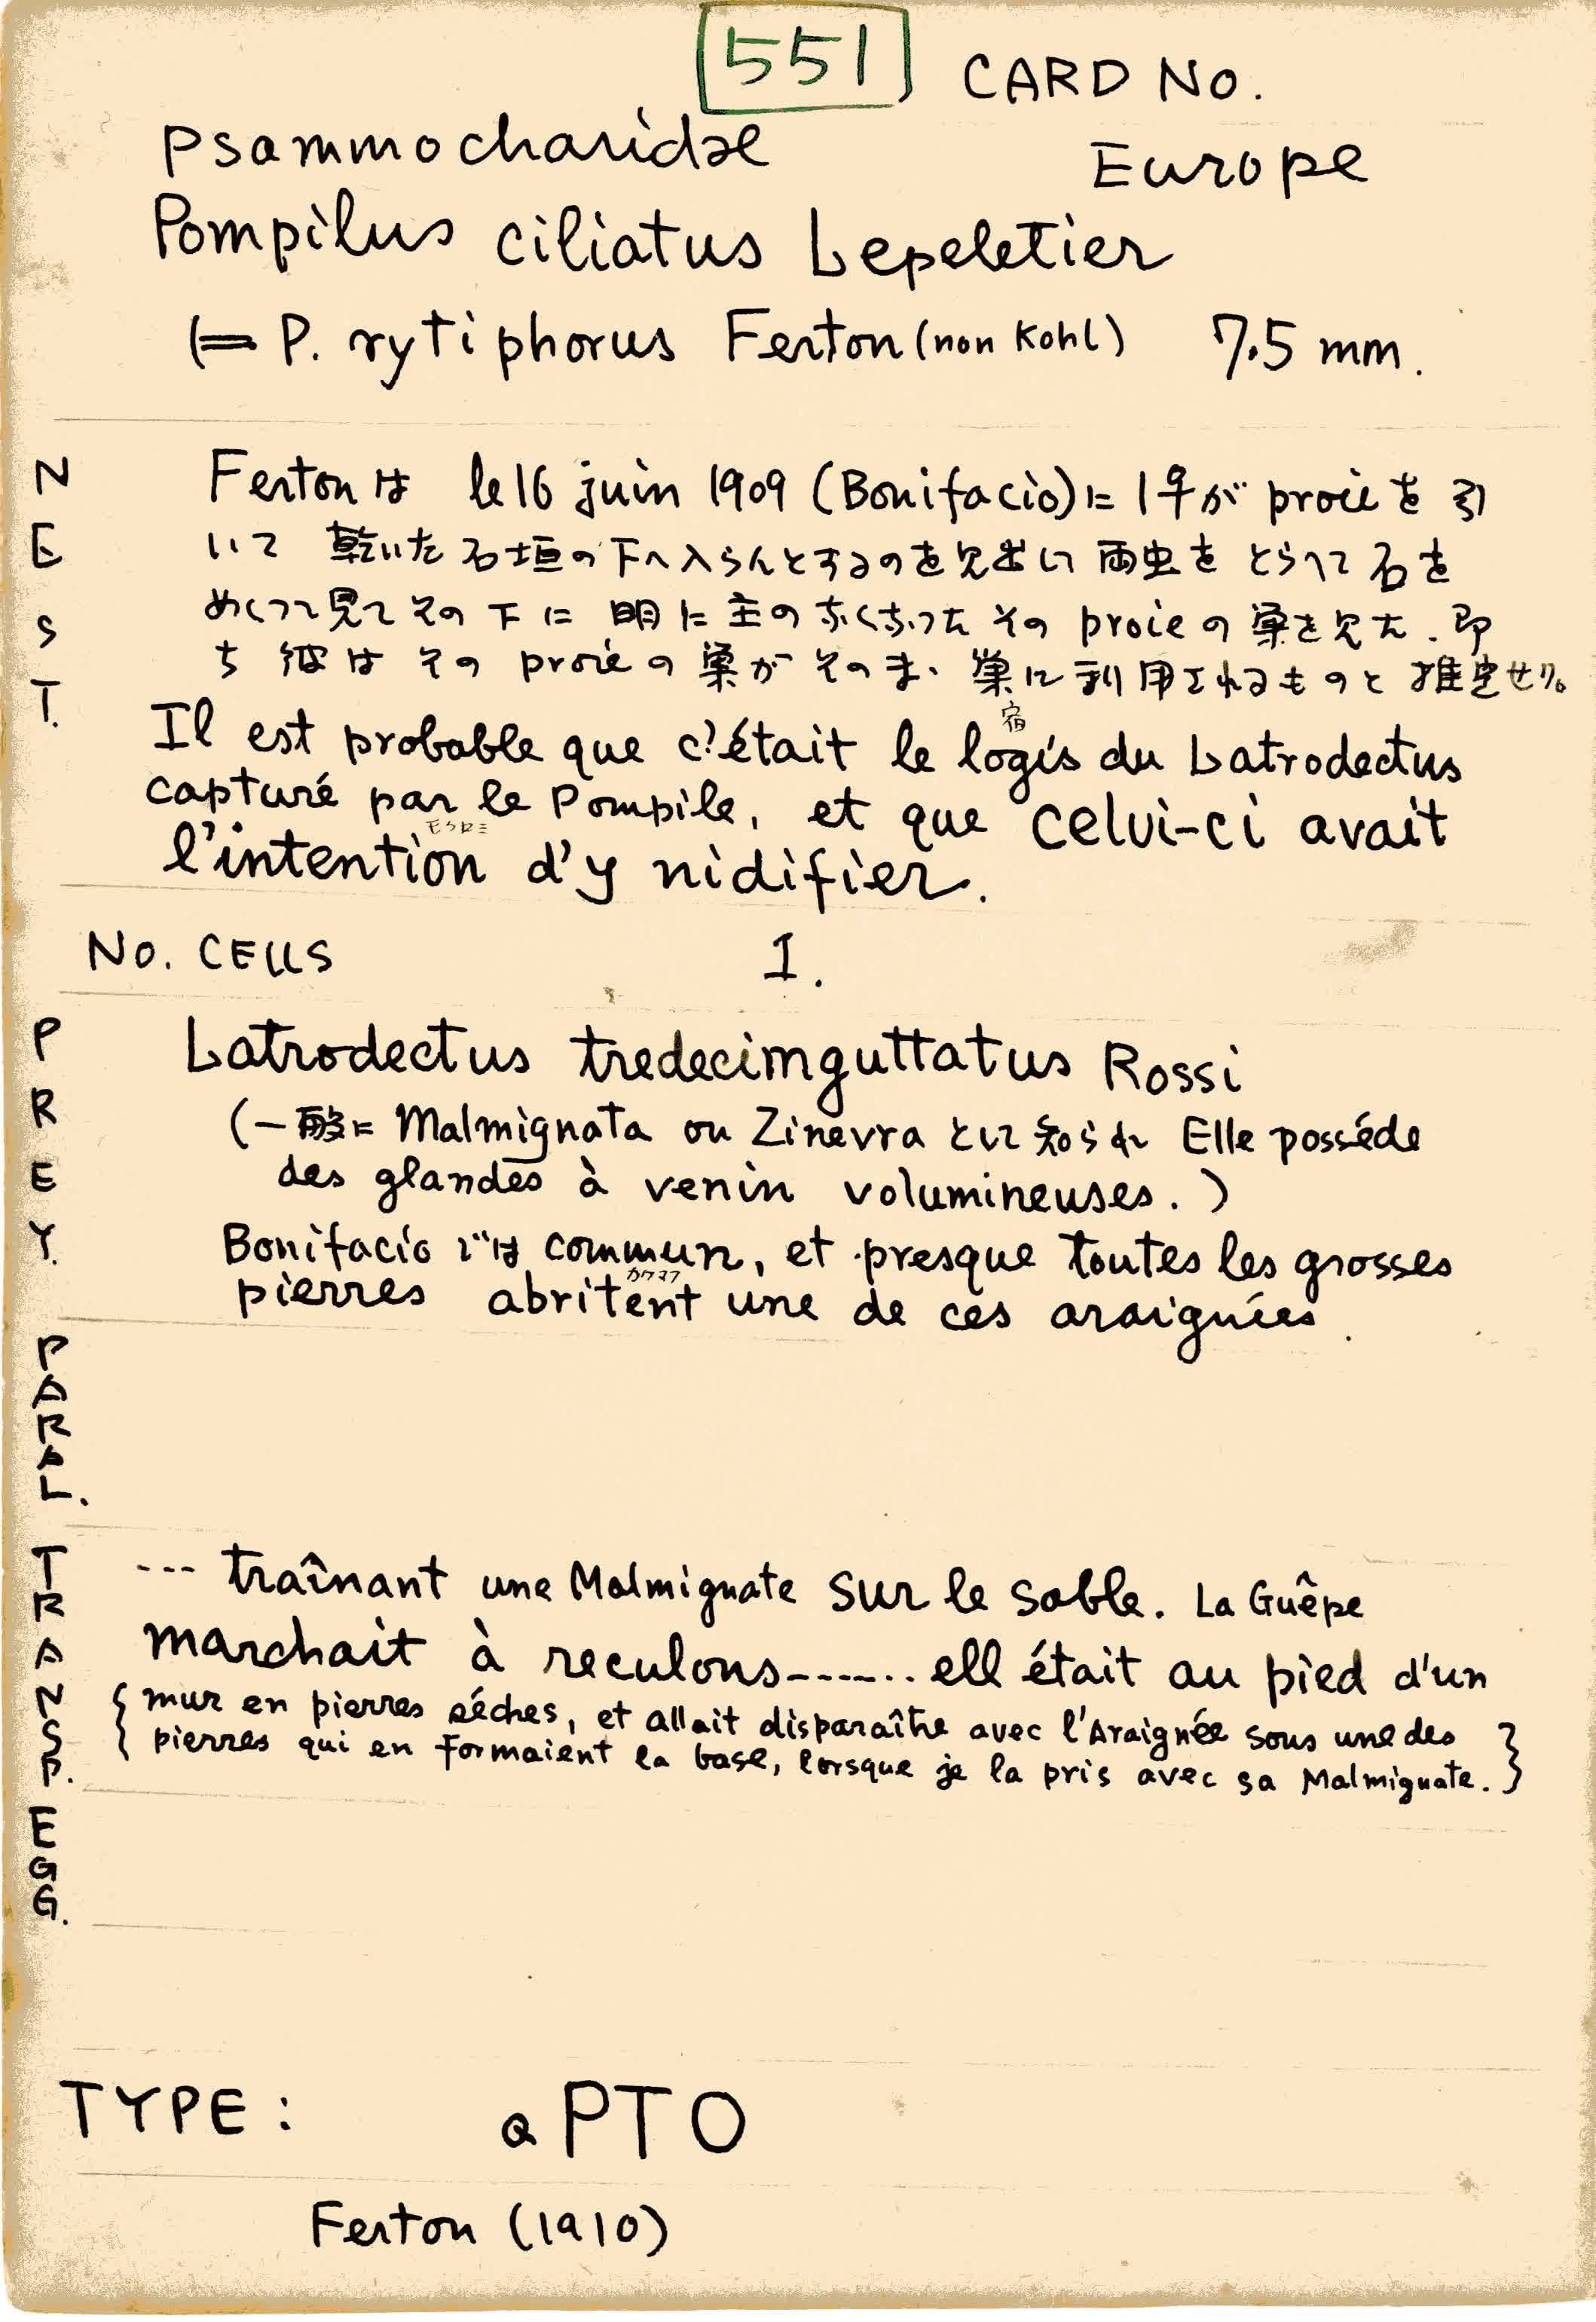 551 CARD NO.
Psammocharidae Europe
Pompilus ciliatus Lepeletier
(= P. rytiphorus Ferton (non Kohl) 7.5 mm.
NEST.
Fertonは le 16 juin 1909 (Bonifacio)に 1♀が proieを引
いて 乾いた石垣の下へ入らんとするのを見出して 両虫をとらへて石を
めくつて見てその下に 明に主の なくなつた その proieの巣を見た. 即
ち 彼は その proieの巣が そのまゝ 巣に利用されるものと 推定せり。
Il est probable que c'était le logis du Latrodectus
宿
capturé par le Pompile, et que celui-ci avait
l'intention d'y nidifier.
NO. CELLS 1.
PREY.
Latrodectus tredecimguttatus Rossi
(一般に Malmignata ou Zinevra として知られ Elle posséde
des glandes à venin volumineuses.)
Bonifacio では commun, et presque toutes les grosses
pierres abritent une de ces araignées.
PARAL.
TRANSP.
--- traînant une Malmignate sur le sable. La Guêpe
marchait à reculons------.. ell était au pied d'un
{mur en pierres séches, et allait disparaître avec l'Araignée sous une des
pierres qui en formaient la base, lorsque je la pris avec sa Malmignate.}
EGG.
TYPE: a PTO
Ferton (1910)